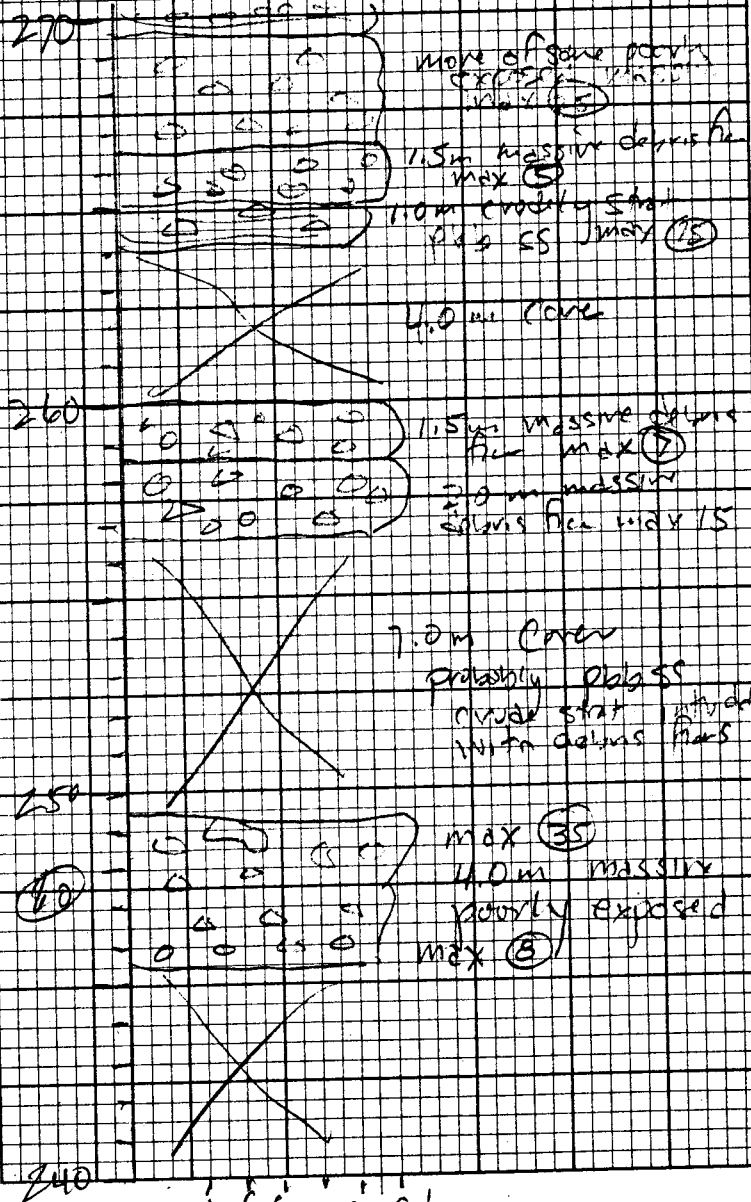 270
more of same poorly
max
1.5m massive debris flow
max 5
1.0m crudely strat
pbb ss max 15
4.0 m Cover
260
1.5m massive debris
flow max 7
2.0 m massive
debris flow max 15
7.0m Cover
probably pbb ss
crude strat
with debris flows
250
max 35
4.0m massive
poorly exposed
max 8
240